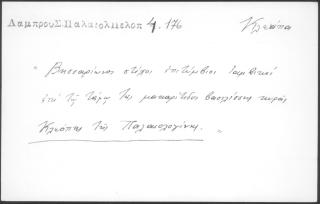 Λαμπρου Σ. Παλαιολ Πελοπ 4, 176 Κλεόπα
" Βησσαρίωνος στίχοι ἐπιτύμβιοι ἰαμβικοί
ἐπὶ τῷ τάφῳ τῆς μακαρίτιδος βασιλίσσης κυρᾶς
Κλεόπης τῆς Παλαιολογίνης. "